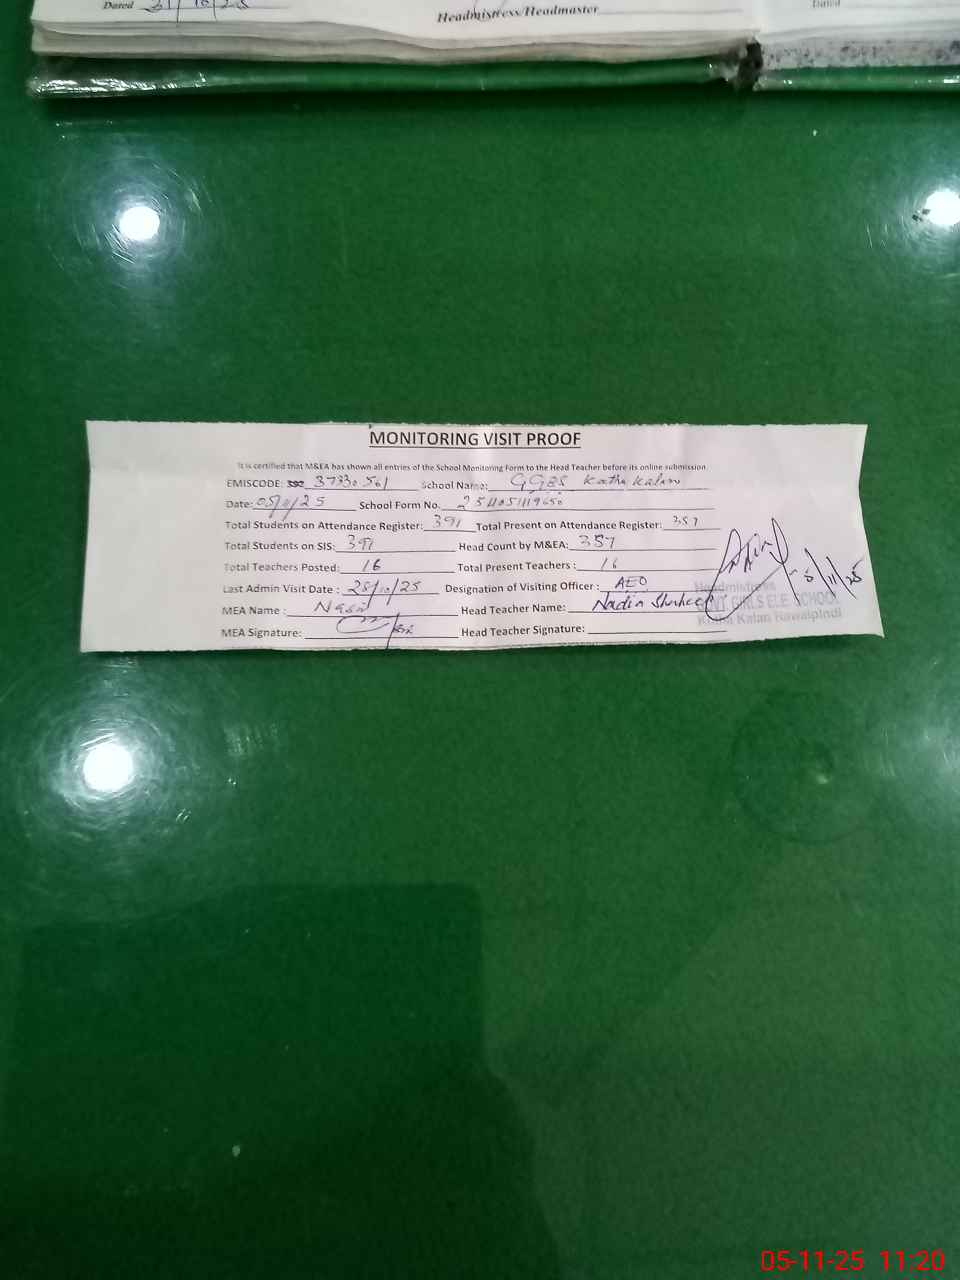 Dated 31/10/25
Headmistress/Headmaster
Dated
MONITORING VISIT PROOF
It is certified that M&EA has shown all entries of the School Monitoring Form to the Head Teacher before its online submission
EMISCODE: 37330561 School Name: GGES Katha Kalan
Date: 05/11/25 School Form No. 
Total Students on Attendance Register: 391 Total Present on Attendance Register: 357
Total Students on SIS: 391 Head Count by M&EA: 357
Total Teachers Posted: 16 Total Present Teachers : 16
Last Admin Visit Date : 28/10/25 Designation of Visiting Officer : AEO
MEA Name : Head Teacher Name: Nadia
MEA Signature: Head Teacher Signature:
5/11/25
Headmistress
GOVT GIRLS ELE SCHOOL
Kalan Rawalpindi
05-11-25 11:20